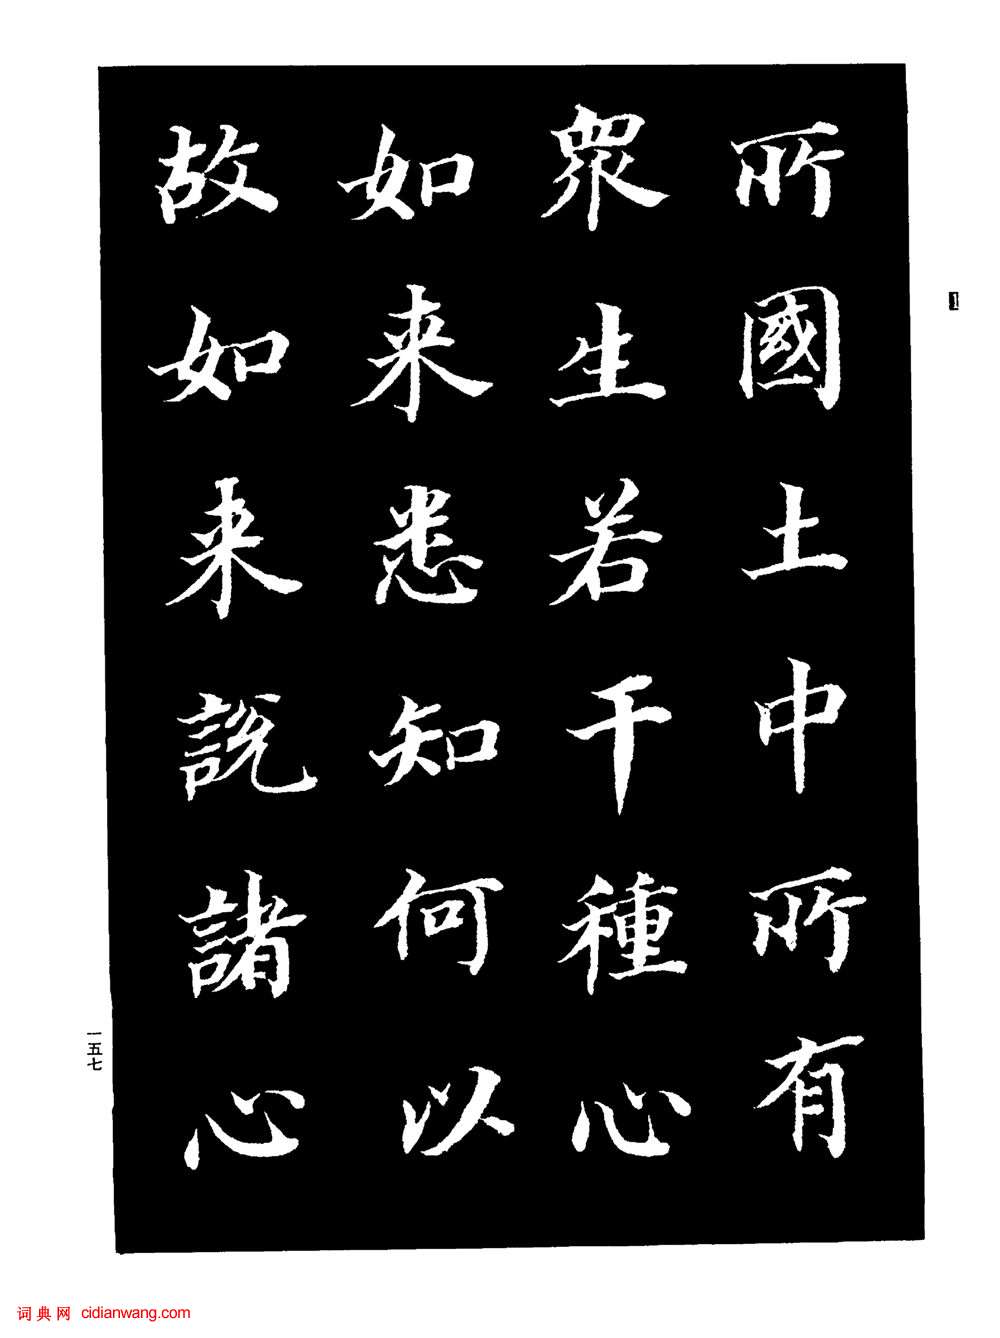 所國土中所有
眾生若干種心
如来悉知何以
故如来説諸心
一五七
1
词典网 cidianwang.com